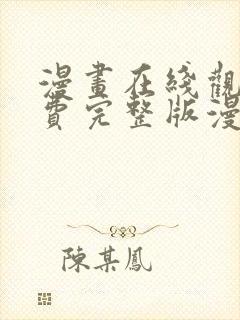 漫畫在綫觀
費完整版漫
陳某鳳